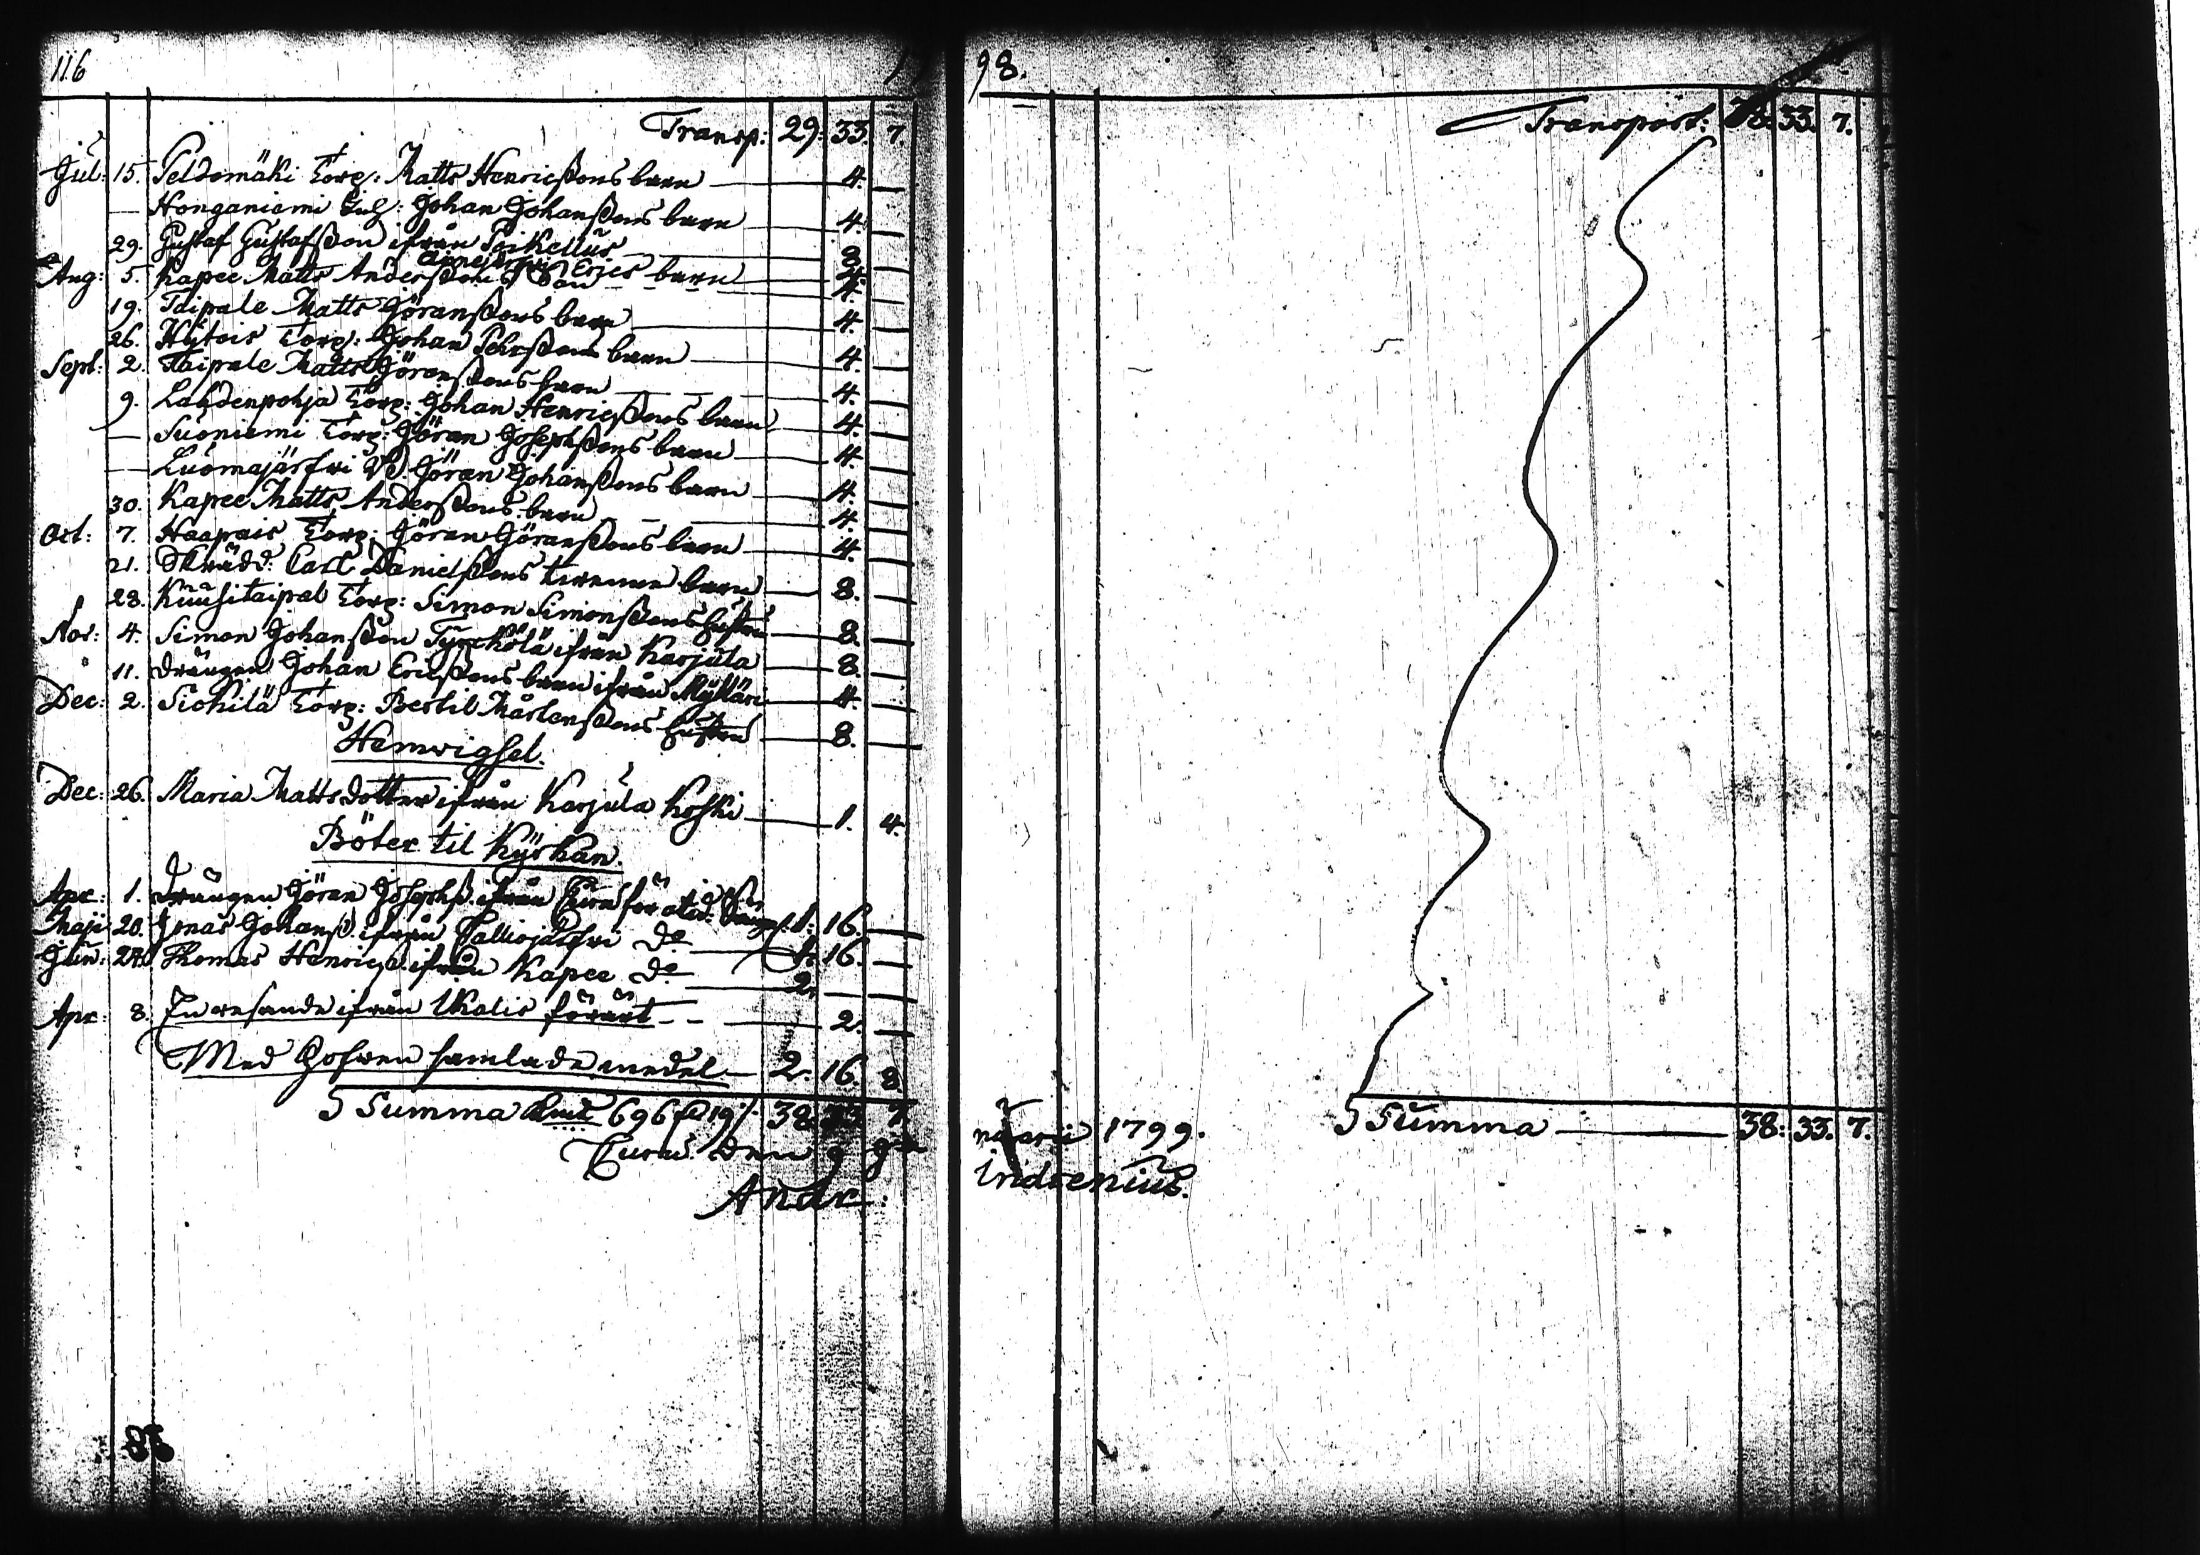 116
Transp: 29: 33. 7.
Jul: 15. Peldomäki Torp: Matts Henricssons barn 4.
Honganiemi Johan Johanssons barn 4.
29. Gustaf Gustafsson ifrån Poikellus 8.
Aug: 5. Kapee Matts Anderssons barn 4.
19. Taipale Matts Göranssons barn 4.
26. Hytois Torp: Johan Pehrssons barn 4.
Sept: 2. Taipale Matts Göranssons barn 4.
9. Lahdenpohja Torp: Johan Henricssons barn 4.
Suoniemi Torp: Göran Josephssons barn 4.
Luomajärfwi Göran Johanssons barn 4.
30. Kapee Matts Anderssons barn 4.
Oct: 7. Haapais Torp: Göran Göranssons barn 4.
21. Skrädd: Carl Danielssons barn 8.
28. Kuusitaipal Torp: Simon Simonssons hustru 8.
Nov: 4. Simon Johansson ifrån Karjula 8.
11. Drängen Johan Ericssons barn ifrån Myllari 4.
Dec: 2. Siokilä Torp: Bertil Mårtenssons hustru 8.
Hemwigsel.
Dec: 26. Maria Mattsdotter ifrån Karjula Koski 1. 4.
Böter til Kyrkan.
Apr: 1. Drängen Göran Josephss. ifrån för 1: 16.
Maji 20. Jonas Johanss. ifrån Kalliojärfwi do 1: 16.
Jun: 24. Thomas Henricss. ifrån Kapee do 2.
Apr: 8. En resande ifrån Ikalis förärt 2.
Med Hofwen samlade medel 2. 16. 8.
Summa 696 19 38. 33. 7.
Curu den 9
Andr:
98.
Transport: 38. 33. 7.
Summa 38: 33. 7.
nuarii 1799.
Indrenius.